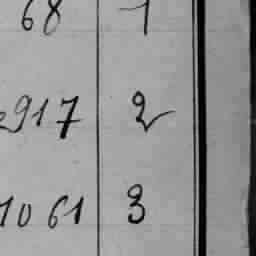 68 1
2917 2
1061 3